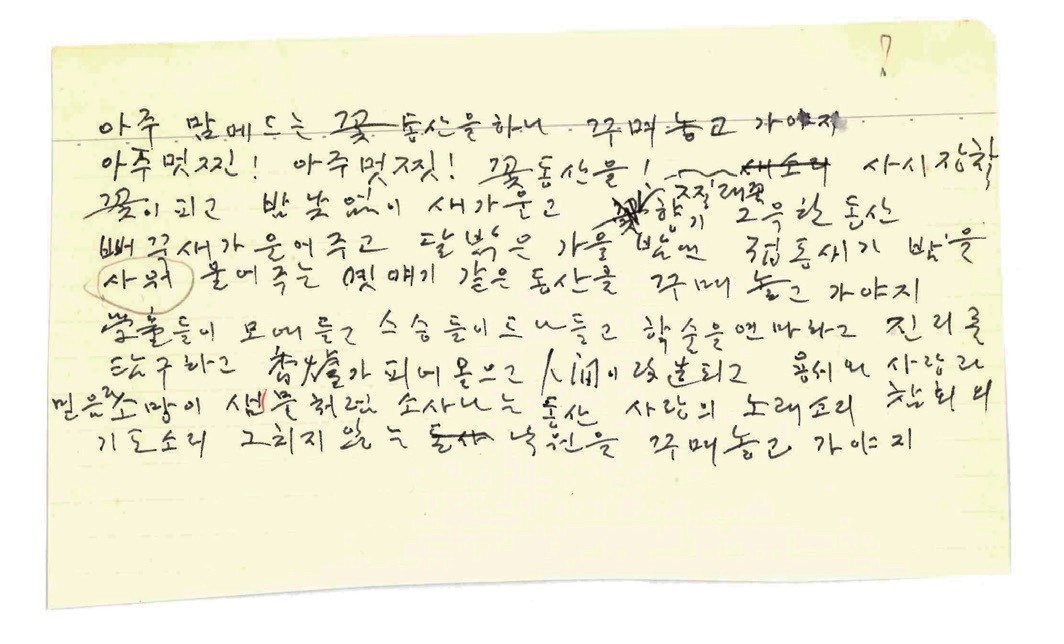 아주 맘에 드는 꽃 동산을 하나 꾸며 놓고 가야지
아주 멋찐! 아주 멋찟! 꽃동산을! 새소리 사시장철
꽃이 피고 밤낮 없이 새가 운고 찔래꽃 향기 그윽한 동산
뻐꾹새가 울어주고 달밝은 가을 밤엔 접동새가 밤을
사워 울어주는 옛 얘기 같은 동산을 꾸며 놓고 가야지
学童들이 모여들고 스승들이 드나들고 학술을 연마하고 진리를
탐구하고 香爐가 피어 올으고 人间이 改造되고 용서와 사랑과
믿음과 소망이 샘물처럼 소사나는 동산 사랑의 노래소리 참회의
기도소리 그치지 않는 동산 낙원을 꾸며놓고 가야지